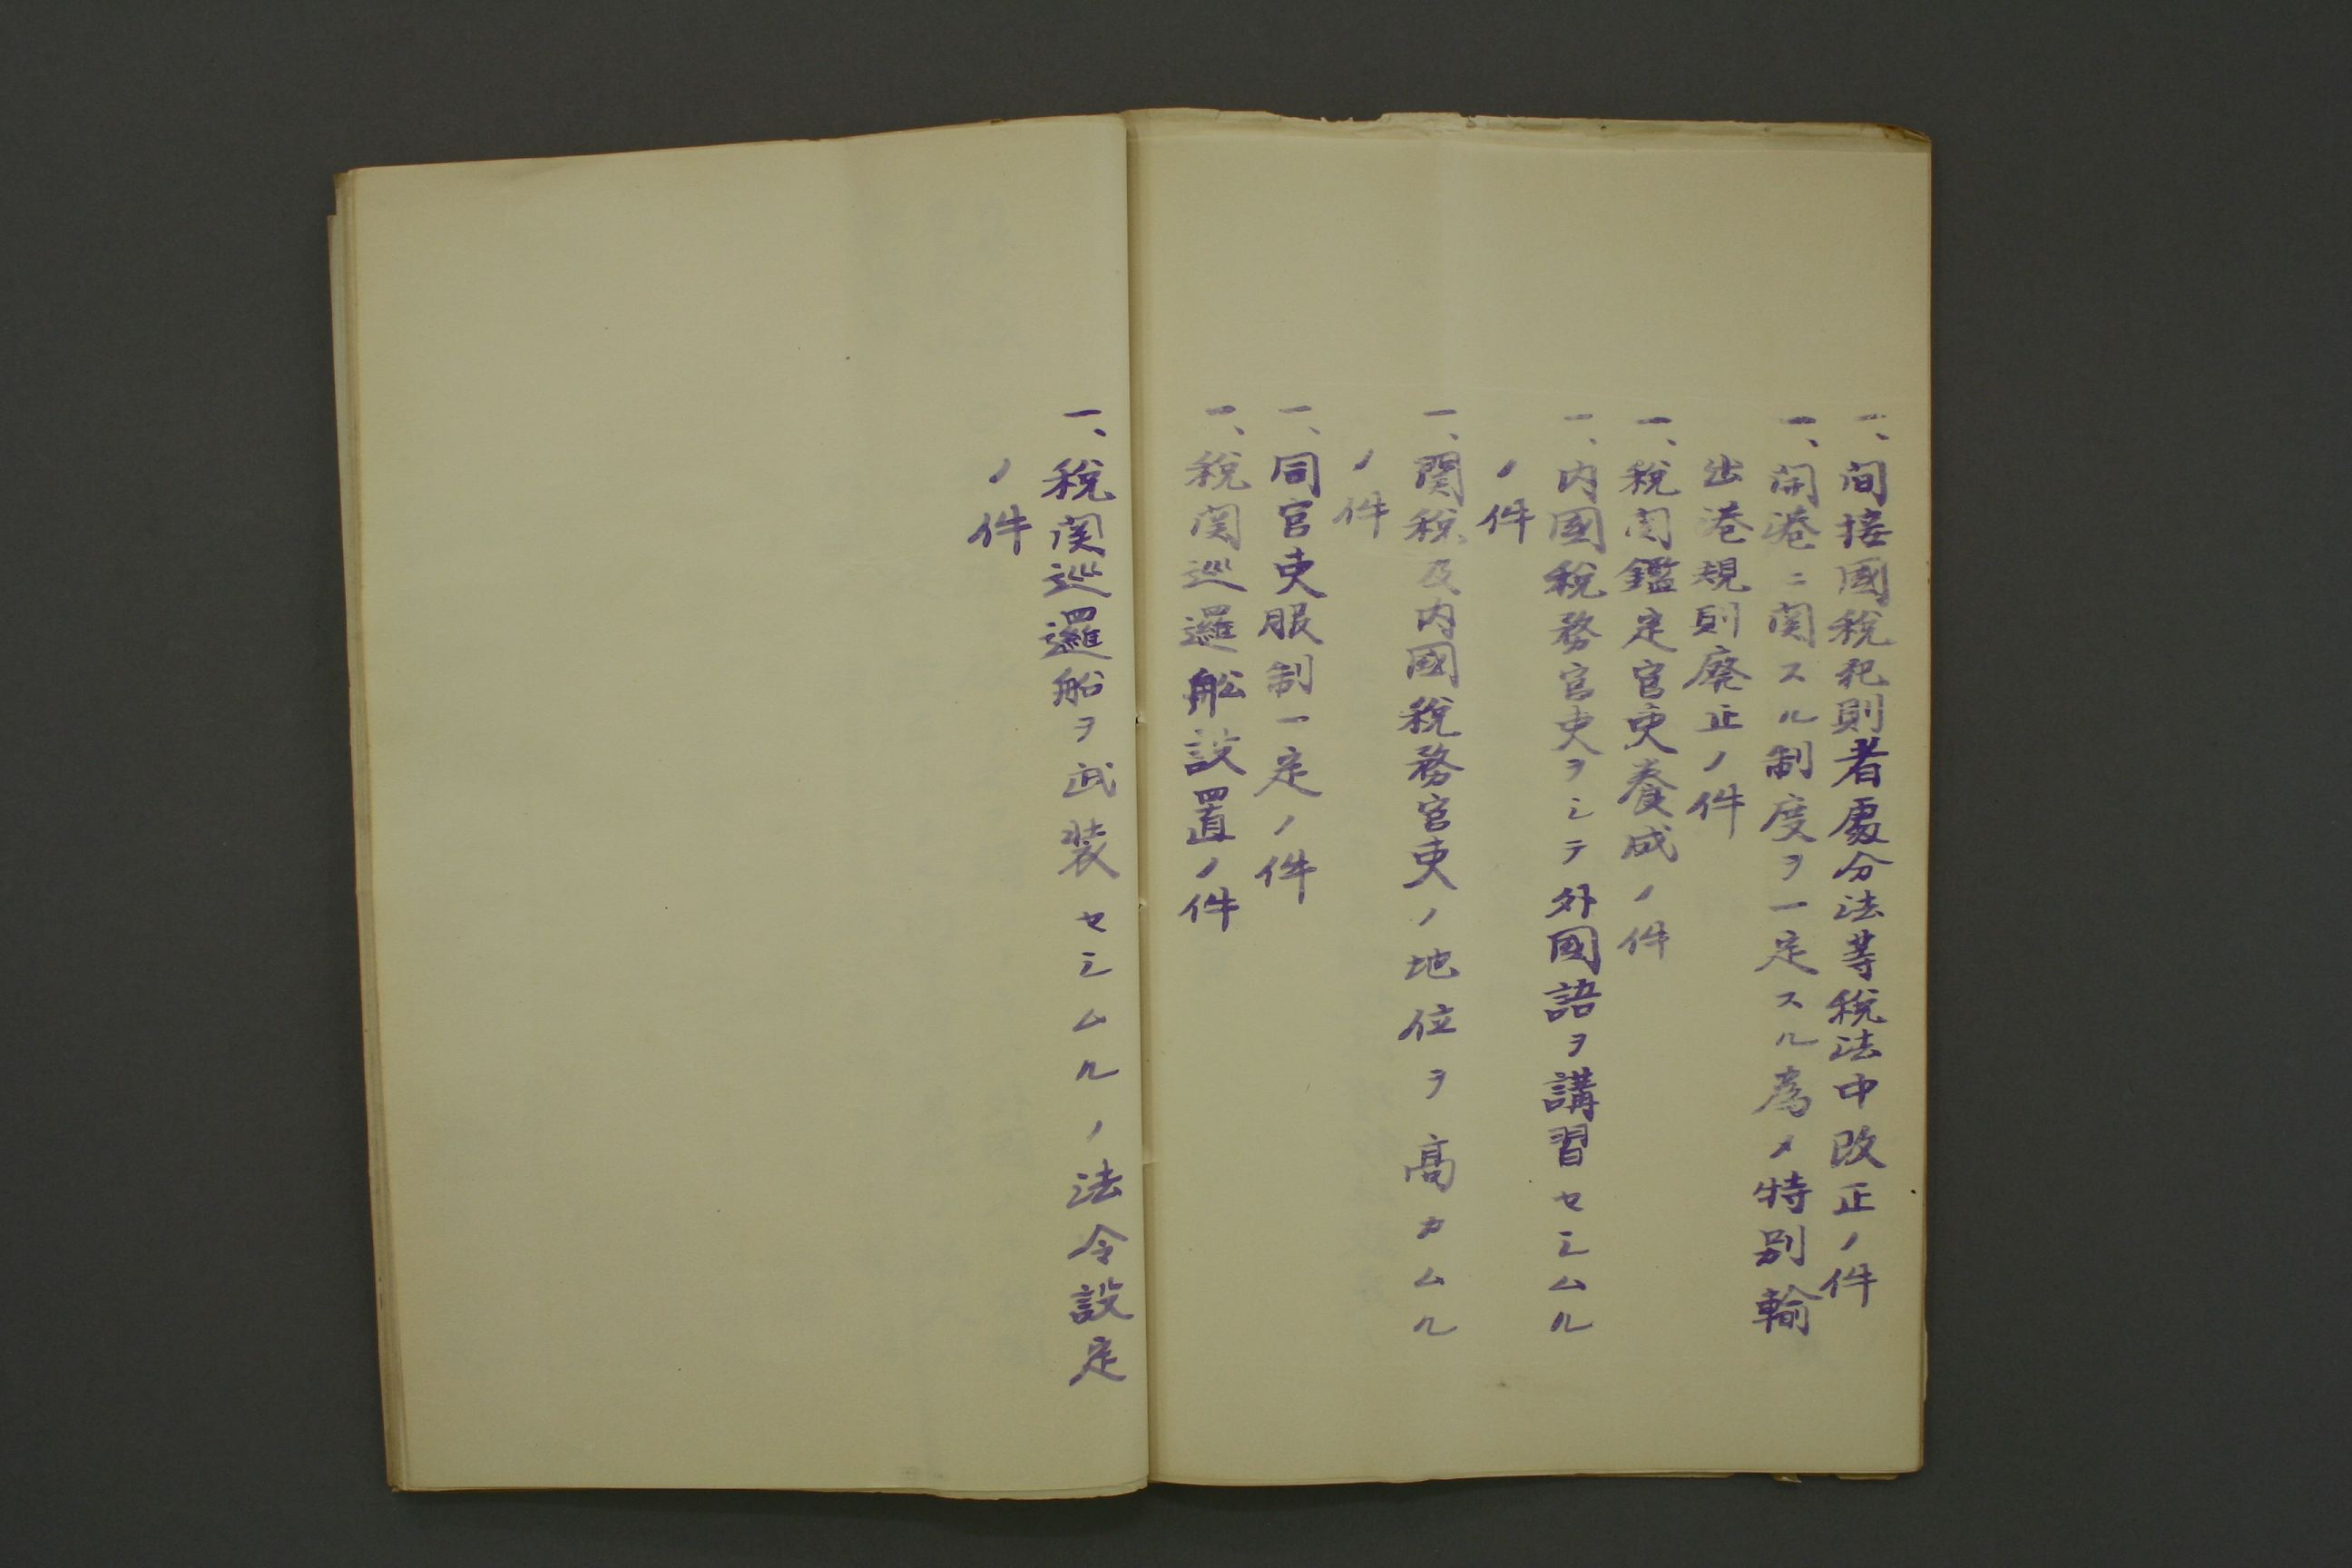 一、間接國税犯則者處分法等税法中改正ノ件
一、開港ニ関スル制度ヲ一定スル為メ特別輸
出港規則廃止ノ件
一、税関鑑定官吏養成ノ件
一、内國税務官吏ヲシテ外國語ヲ講習セシムル
ノ件
一、関税及内國税務官吏ノ地位ヲ高カムル
ノ件
一、同官吏服制一定ノ件
一、税関巡邏船設置ノ件
一、税関巡邏船ヲ武装セシムルノ法令設定
ノ件